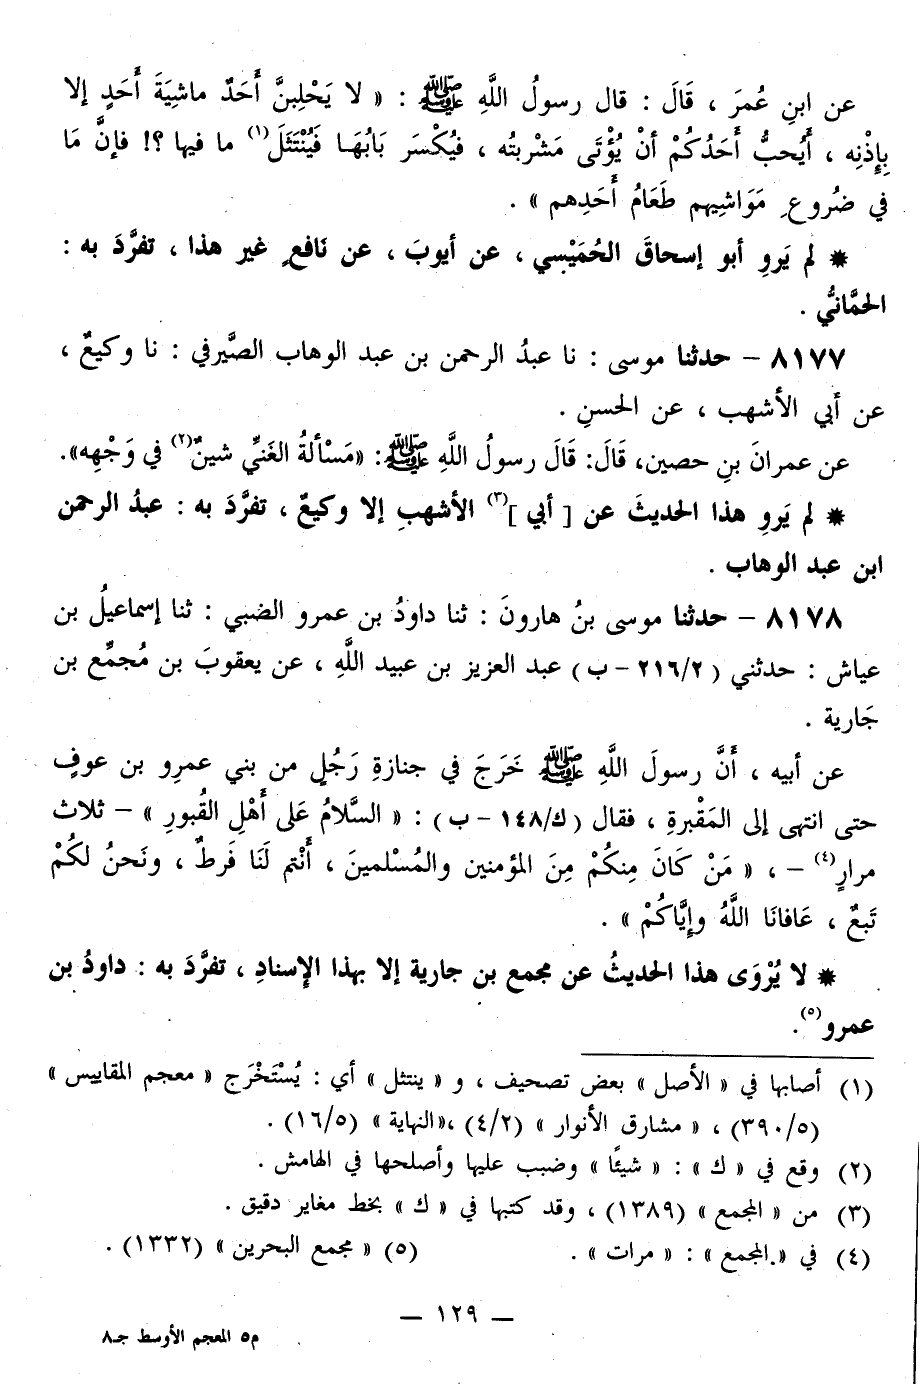 عن ابنِ عُمرَ ، قَالَ : قال رسولُ اللَّهِ ﷺ : « لا يَحْلِبنَّ أَحَدٌ ماشيَةَ أَحَدٍ إلا
بِإِذْنِه ، أَيُحبُّ أَحَدُكُمْ أنْ يُؤْتَى مَشْربتُه ، فيُكْسَر بَابُهَا فَيُنْتَثَلَ(١) ما فيها ؟! فإنَّ مَا
في ضُروعِ مَوَاشيهم طَعَامُ أَحَدِهم » .
* لم يَروِ أبو إسحاقَ الحُمَيْسي ، عن أيوبَ ، عن نَافعٍ غير هذا ، تفرَّدَ به :
الحمَّانيُّ .
٨١٧٧ – حدثنا موسى : نا عبدُ الرحمن بن عبد الوهاب الصَّيرفي : نا وكيعٌ ،
عن أبي الأشهب ، عن الحسنِ .
عن عمرانَ بنِ حصين، قَالَ: قَالَ رسولُ اللَّهِ ﷺ: «مَسْألةُ الغَنيِّ شينٌ(٢) في وَجْهِه».
* لم يَروِ هذا الحديثَ عن [ أبي ](٣) الأشهبِ إلا وكيعٌ ، تفرَّدَ به : عبدُ الرحمن
ابن عبد الوهاب .
٨١٧٨ – حدثنا موسى بنُ هارونَ : ثنا داودُ بن عمرو الضبي : ثنا إسماعيلُ بن
عياش : حدثني ( ٢١٦/٢ – ب ) عبد العزيز بن عبيد اللَّهِ ، عن يعقوبَ بن مُجمِّع بن
جَارية .
عن أبيه ، أنَّ رسولَ اللَّهِ ﷺ خَرَجَ في جنازةِ رَجُلٍ من بني عمرِو بن عوفٍ
حتى انتهى إلى المَقْبرةِ ، فقال ( ك/١٤٨ – ب ) : « السَّلامُ عَلى أَهْلِ القُبورِ » – ثلاث
مرارٍ(٤) – ، « مَنْ كَانَ مِنكُمْ مِنَ المؤمنين والمُسْلمينَ ، أَنْتم لَنَا فَرطٌ ، ونَحنُ لكُمْ
تَبعٌ ، عَافانَا اللَّهُ وإِيَّاكُمْ » .
* لا يُرْوَى هذا الحديثُ عن مجمع بن جارية إلا بهذا الإسنادِ ، تفرَّدَ به : داودُ بن
عمرو(٥).
(١) أصابها في « الأصل » بعض تصحيف ، و « ينتثل » أي : يُسْتَخْرَج « معجم المقاييس »
(٣٩٠/٥) ، « مشارق الأنوار » (٤/٢) ،«النهاية » (١٦/٥) .
(٢) وقع في « ك » : « شيئًا » وضبب عليها وأصلحها في الهامش .
(٣) من « المجمع » (١٣٨٩) ، وقد كتبها في « ك » بخط مغاير دقيق .
(٤) في « المجمع » : « مرات » . (٥) « مجمع البحرين » (١٣٣٢) .
– ١٢٩ –
م٥ المعجم الأوسط جـ٨